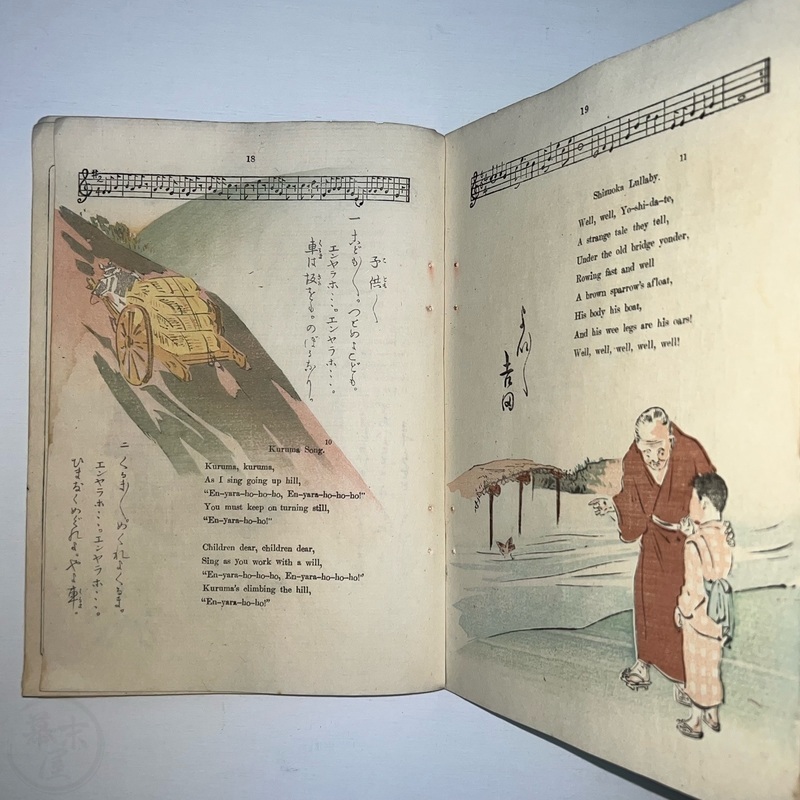 18
子供〱
エンヤラホ・・・。エンヤラホ・・・。
車は坂をも。のぼるなり。
10
Kuruma Song.
Kuruma, kuruma,
As I sing going up hill,
“En-yara-ho-ho-ho, En-yara-ho-ho-ho!”
You must keep on turning still,
“En-yara-ho-ho!”
Children dear, children dear,
Sing as you work with a will,
“En-yara-ho-ho-ho, En-yara-ho-ho-ho!”
Kuruma's climbing the hill,
“En-yara-ho-ho!”
二
エンヤラホ・・・。エンヤラホ・・・。
ひまなくめぐれよ。やよ車。
19
11
Shizuoka Lullaby.
Well, well, Yo-shi-da-te,
A strange tale they tell,
Under the old bridge yonder,
Rowing fast and well
A brown sparrow's afloat,
His body his boat,
And his wee legs are his oars!
Well, well, well, well, well!
吉田
幕末屋